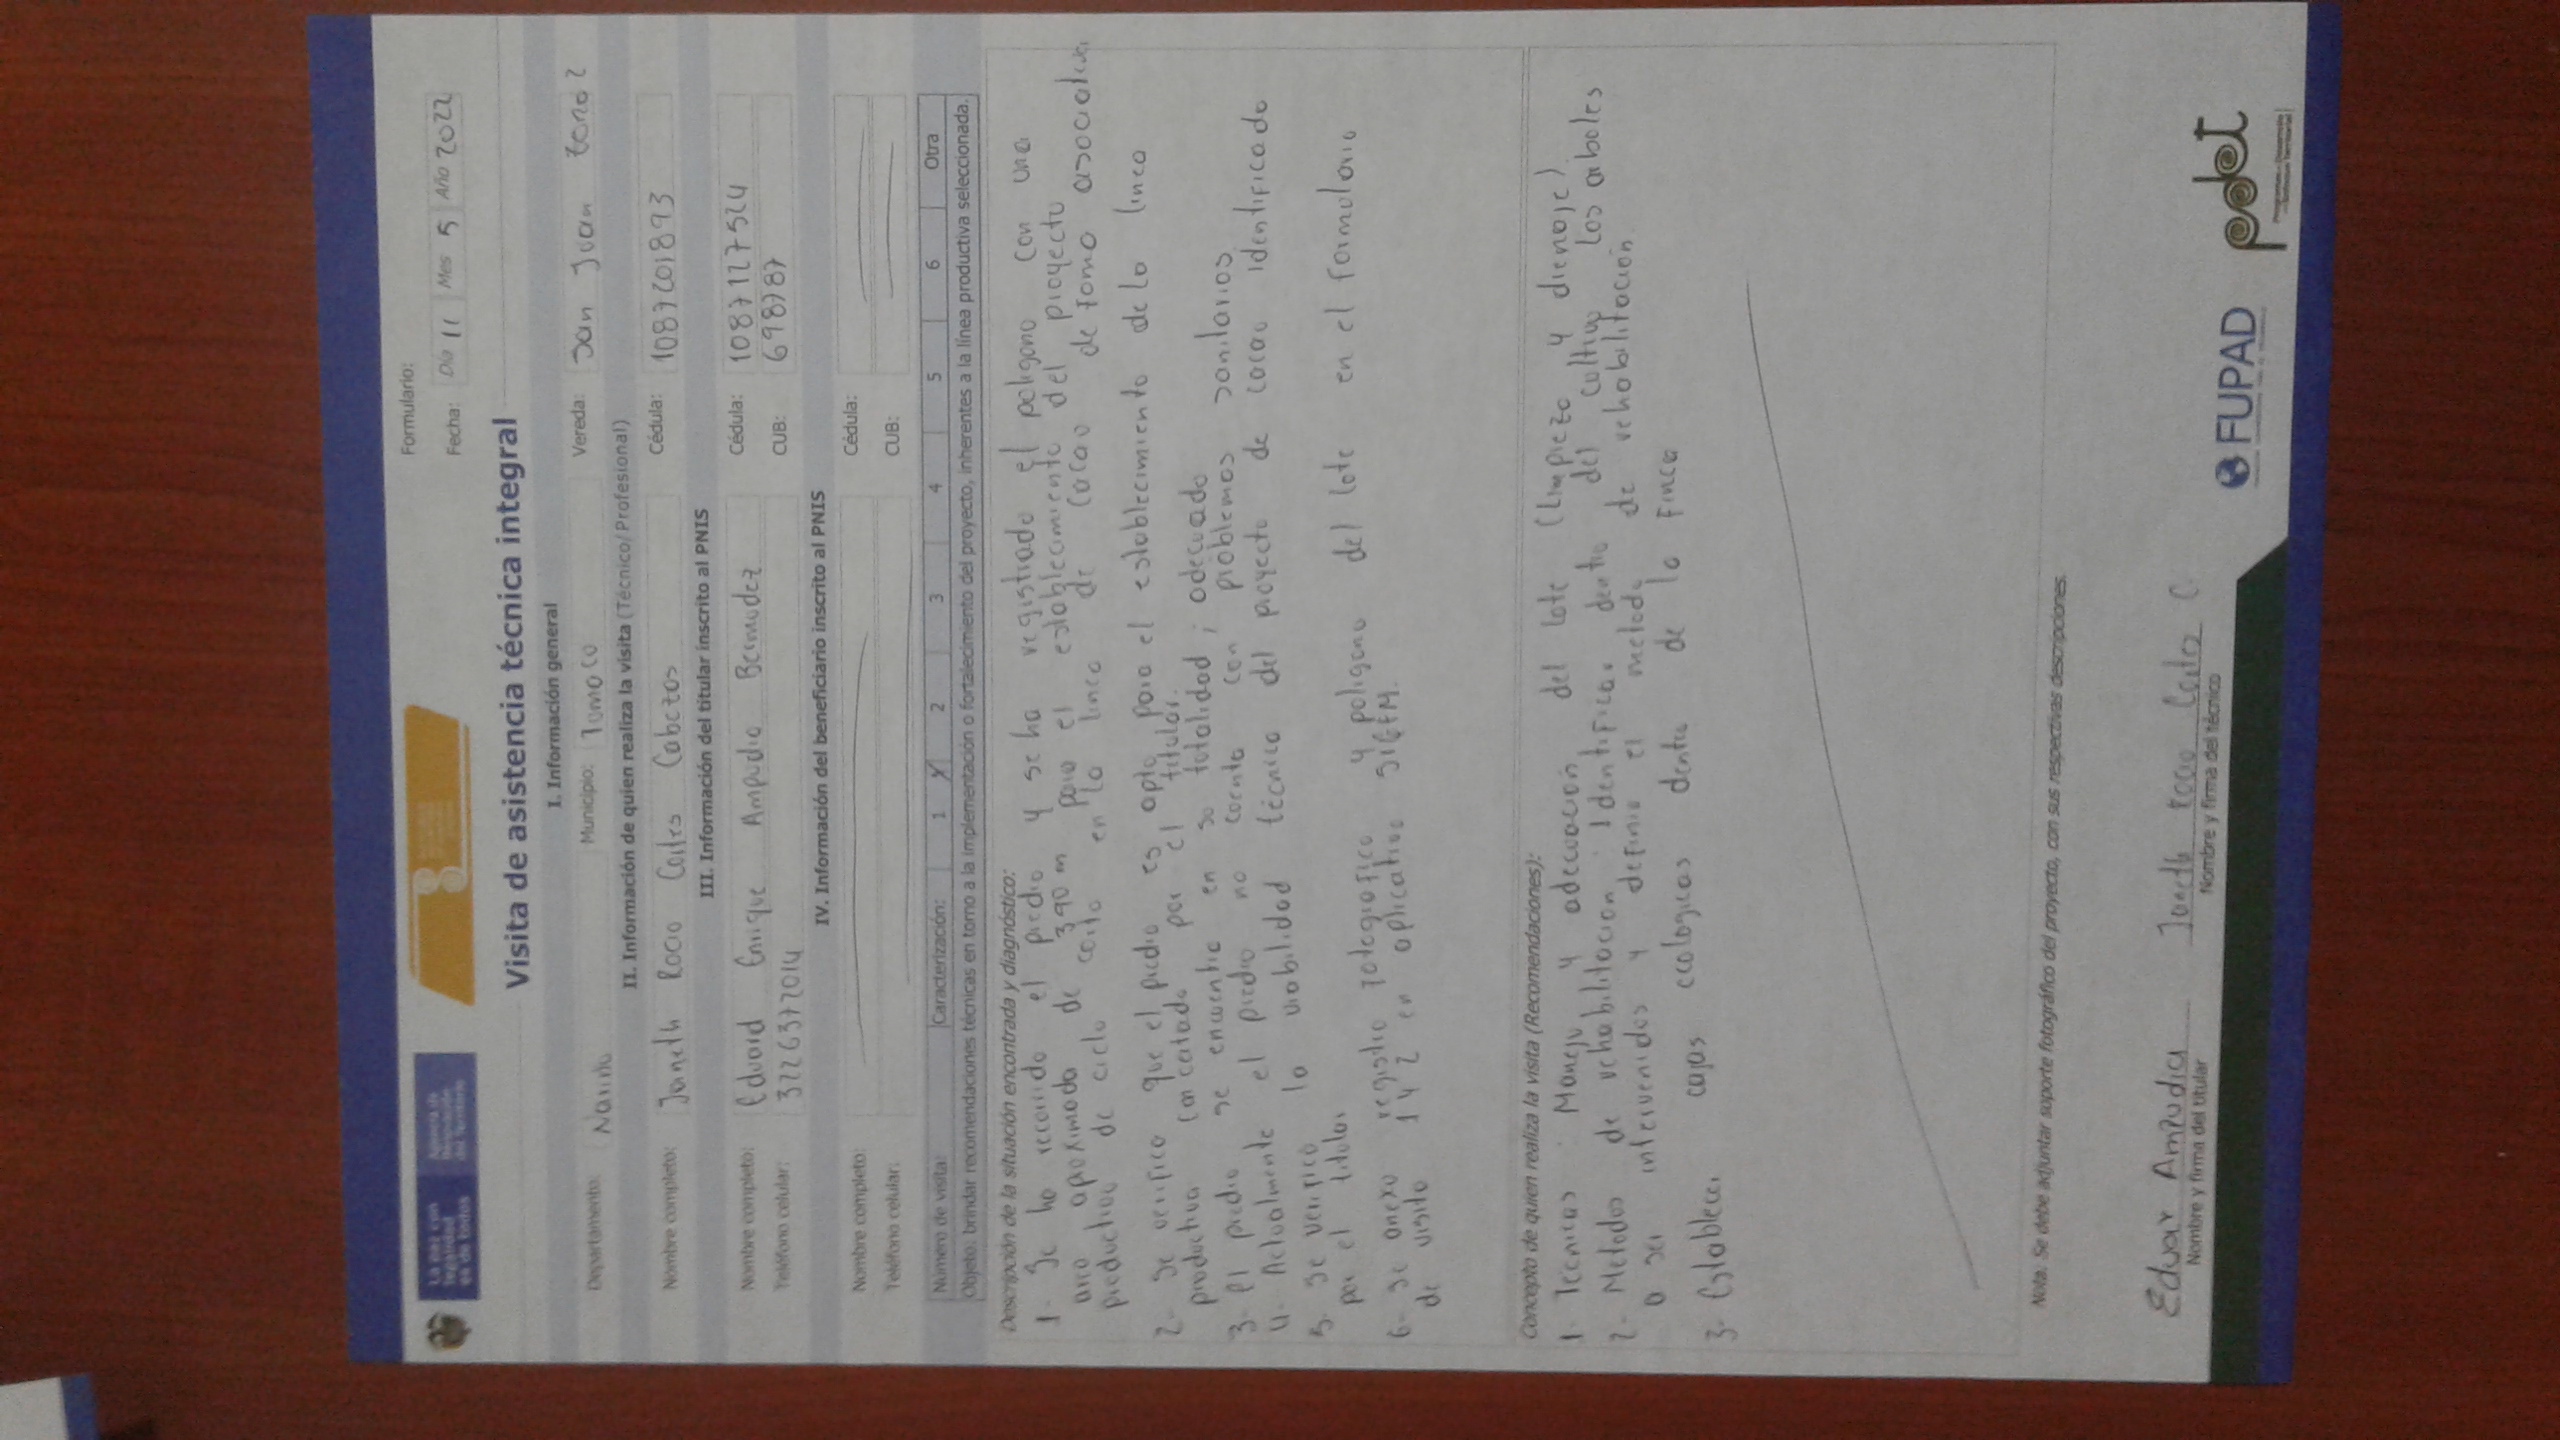 La paz con
legalidad
es de todos
Agencia de
Renovación
del Territorio
Formulario:
Fecha: Día 11 Mes 5 Año 2022
Visita de asistencia técnica integral
I. Información general
Departamento: Nariño Municipio: Tumaco Vereda: San Juan
II. Información de quien realiza la visita (Técnico/Profesional)
Nombre completo: Janeth Rocio Cortes Cabezas Cédula: 1087201893
III. Información del titular inscrito al PNIS
Nombre completo: Eduard Enrique Ampudia Bermudez Cédula: 1087127524
Teléfono celular: 3226377014 CUB: 698787
IV. Información del beneficiario inscrito al PNIS
Nombre completo: Cédula:
Teléfono celular: CUB:
Número de visita: Caracterización: 1 X 2 3 4 5 6 Otra
Objeto: brindar recomendaciones técnicas en torno a la implementación o fortalecimiento del proyecto, inherentes a la línea productiva seleccionada.
Descripción de la situación encontrada y diagnóstico:
1- Se ha recorrido el predio y se ha registrado el poligono con una
area aproximada de 390 m para el establecimiento del proyecto
productivo de ciclo corto en la linea de cacao de forma asociativa
2- Se verifico que el predio es apto para el establecimiento de la linea
productiva concatado por el titular.
3- El predio se encuentra en su totalidad adecuado
4- Actualmente el predio no cuenta con problemas sanitarios
5- Se verifico la viabilidad técnica del proyecto de cacao identificado
por el titular
6- Se anexo registro fotografico y poligono del lote en el formulario
de visita 1 y 2 en aplicativo
Concepto de quien realiza la visita (Recomendaciones):
1- Tecnicas: Manejo y adecuación del lote (limpieza y drenaje)
2- Metodos de rehabilitacion: identificar dentro del cultivo los arboles
a ser intervenidos y definir el metodo de rehabilitación
3- Establecer cajas ecologicas dentro de la finca
Nota. Se debe adjuntar soporte fotográfico del proyecto, con sus respectivas descripciones.
Eduar Ampudia
Nombre y firma del titular
Janeth Rocio Cortes C
Nombre y firma del técnico
FUPAD
pdet